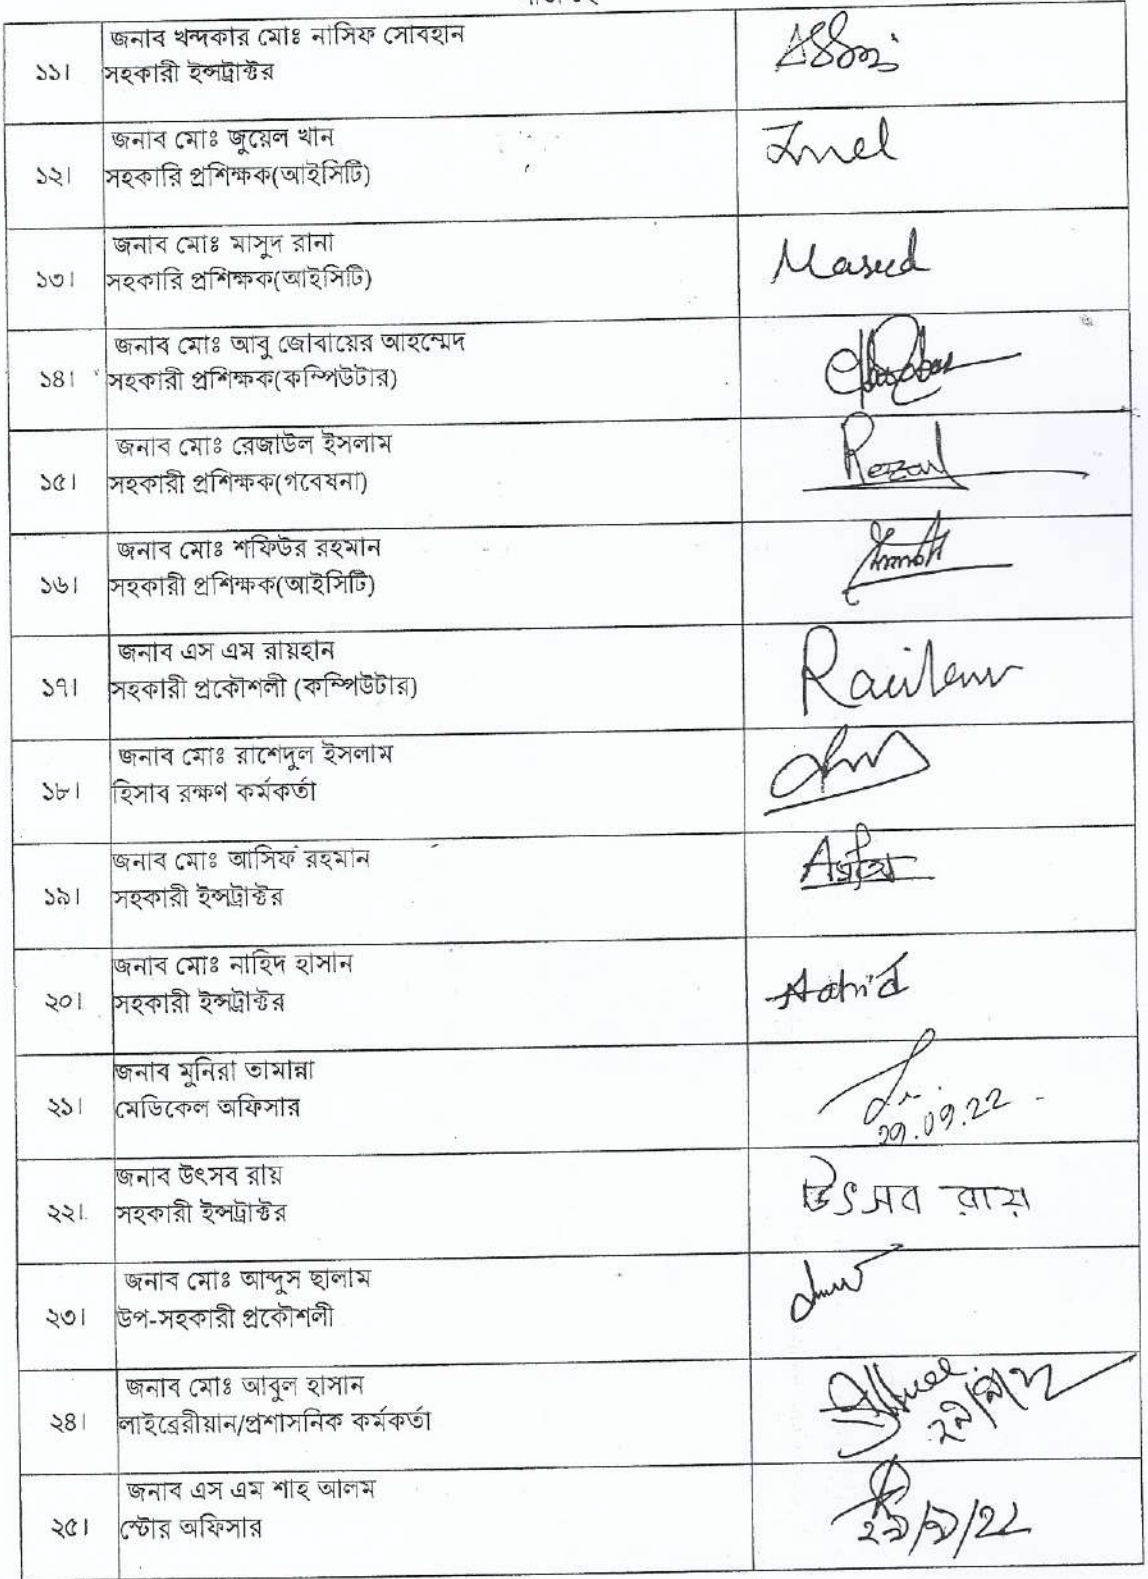 জনাব খন্দকার মোঃ নাসিফ সোবহান
১১। সহকারী ইন্সট্রাক্টর
জনাব মোঃ জুয়েল খান
১২। সহকারি প্রশিক্ষক(আইসিটি)
জনাব মোঃ মাসুদ রানা
১৩। সহকারি প্রশিক্ষক(আইসিটি)
Masud
জনাব মোঃ আবু জোবায়ের আহম্মেদ
১৪। সহকারী প্রশিক্ষক(কম্পিউটার)
জনাব মোঃ রেজাউল ইসলাম
১৫। সহকারী প্রশিক্ষক(গবেষনা)
জনাব মোঃ শফিউর রহমান
১৬। সহকারী প্রশিক্ষক(আইসিটি)
জনাব এস এম রায়হান
১৭। সহকারী প্রকৌশলী (কম্পিউটার)
জনাব মোঃ রাশেদুল ইসলাম
১৮। হিসাব রক্ষণ কর্মকর্তা
জনাব মোঃ আসিফ রহমান
১৯। সহকারী ইন্সট্রাক্টর
জনাব মোঃ নাহিদ হাসান
২০। সহকারী ইন্সট্রাক্টর
জনাব মুনিরা তামান্না
২১। মেডিকেল অফিসার
29.09.22
জনাব উৎসব রায়
২২। সহকারী ইন্সট্রাক্টর
উৎসব রায়
জনাব মোঃ আব্দুস ছালাম
২৩। উপ-সহকারী প্রকৌশলী
জনাব মোঃ আবুল হাসান
২৪। লাইব্রেরীয়ান/প্রশাসনিক কর্মকর্তা
২৯/৯/২২
জনাব এস এম শাহ আলম
২৫। স্টোর অফিসার
২৯/৯/২২